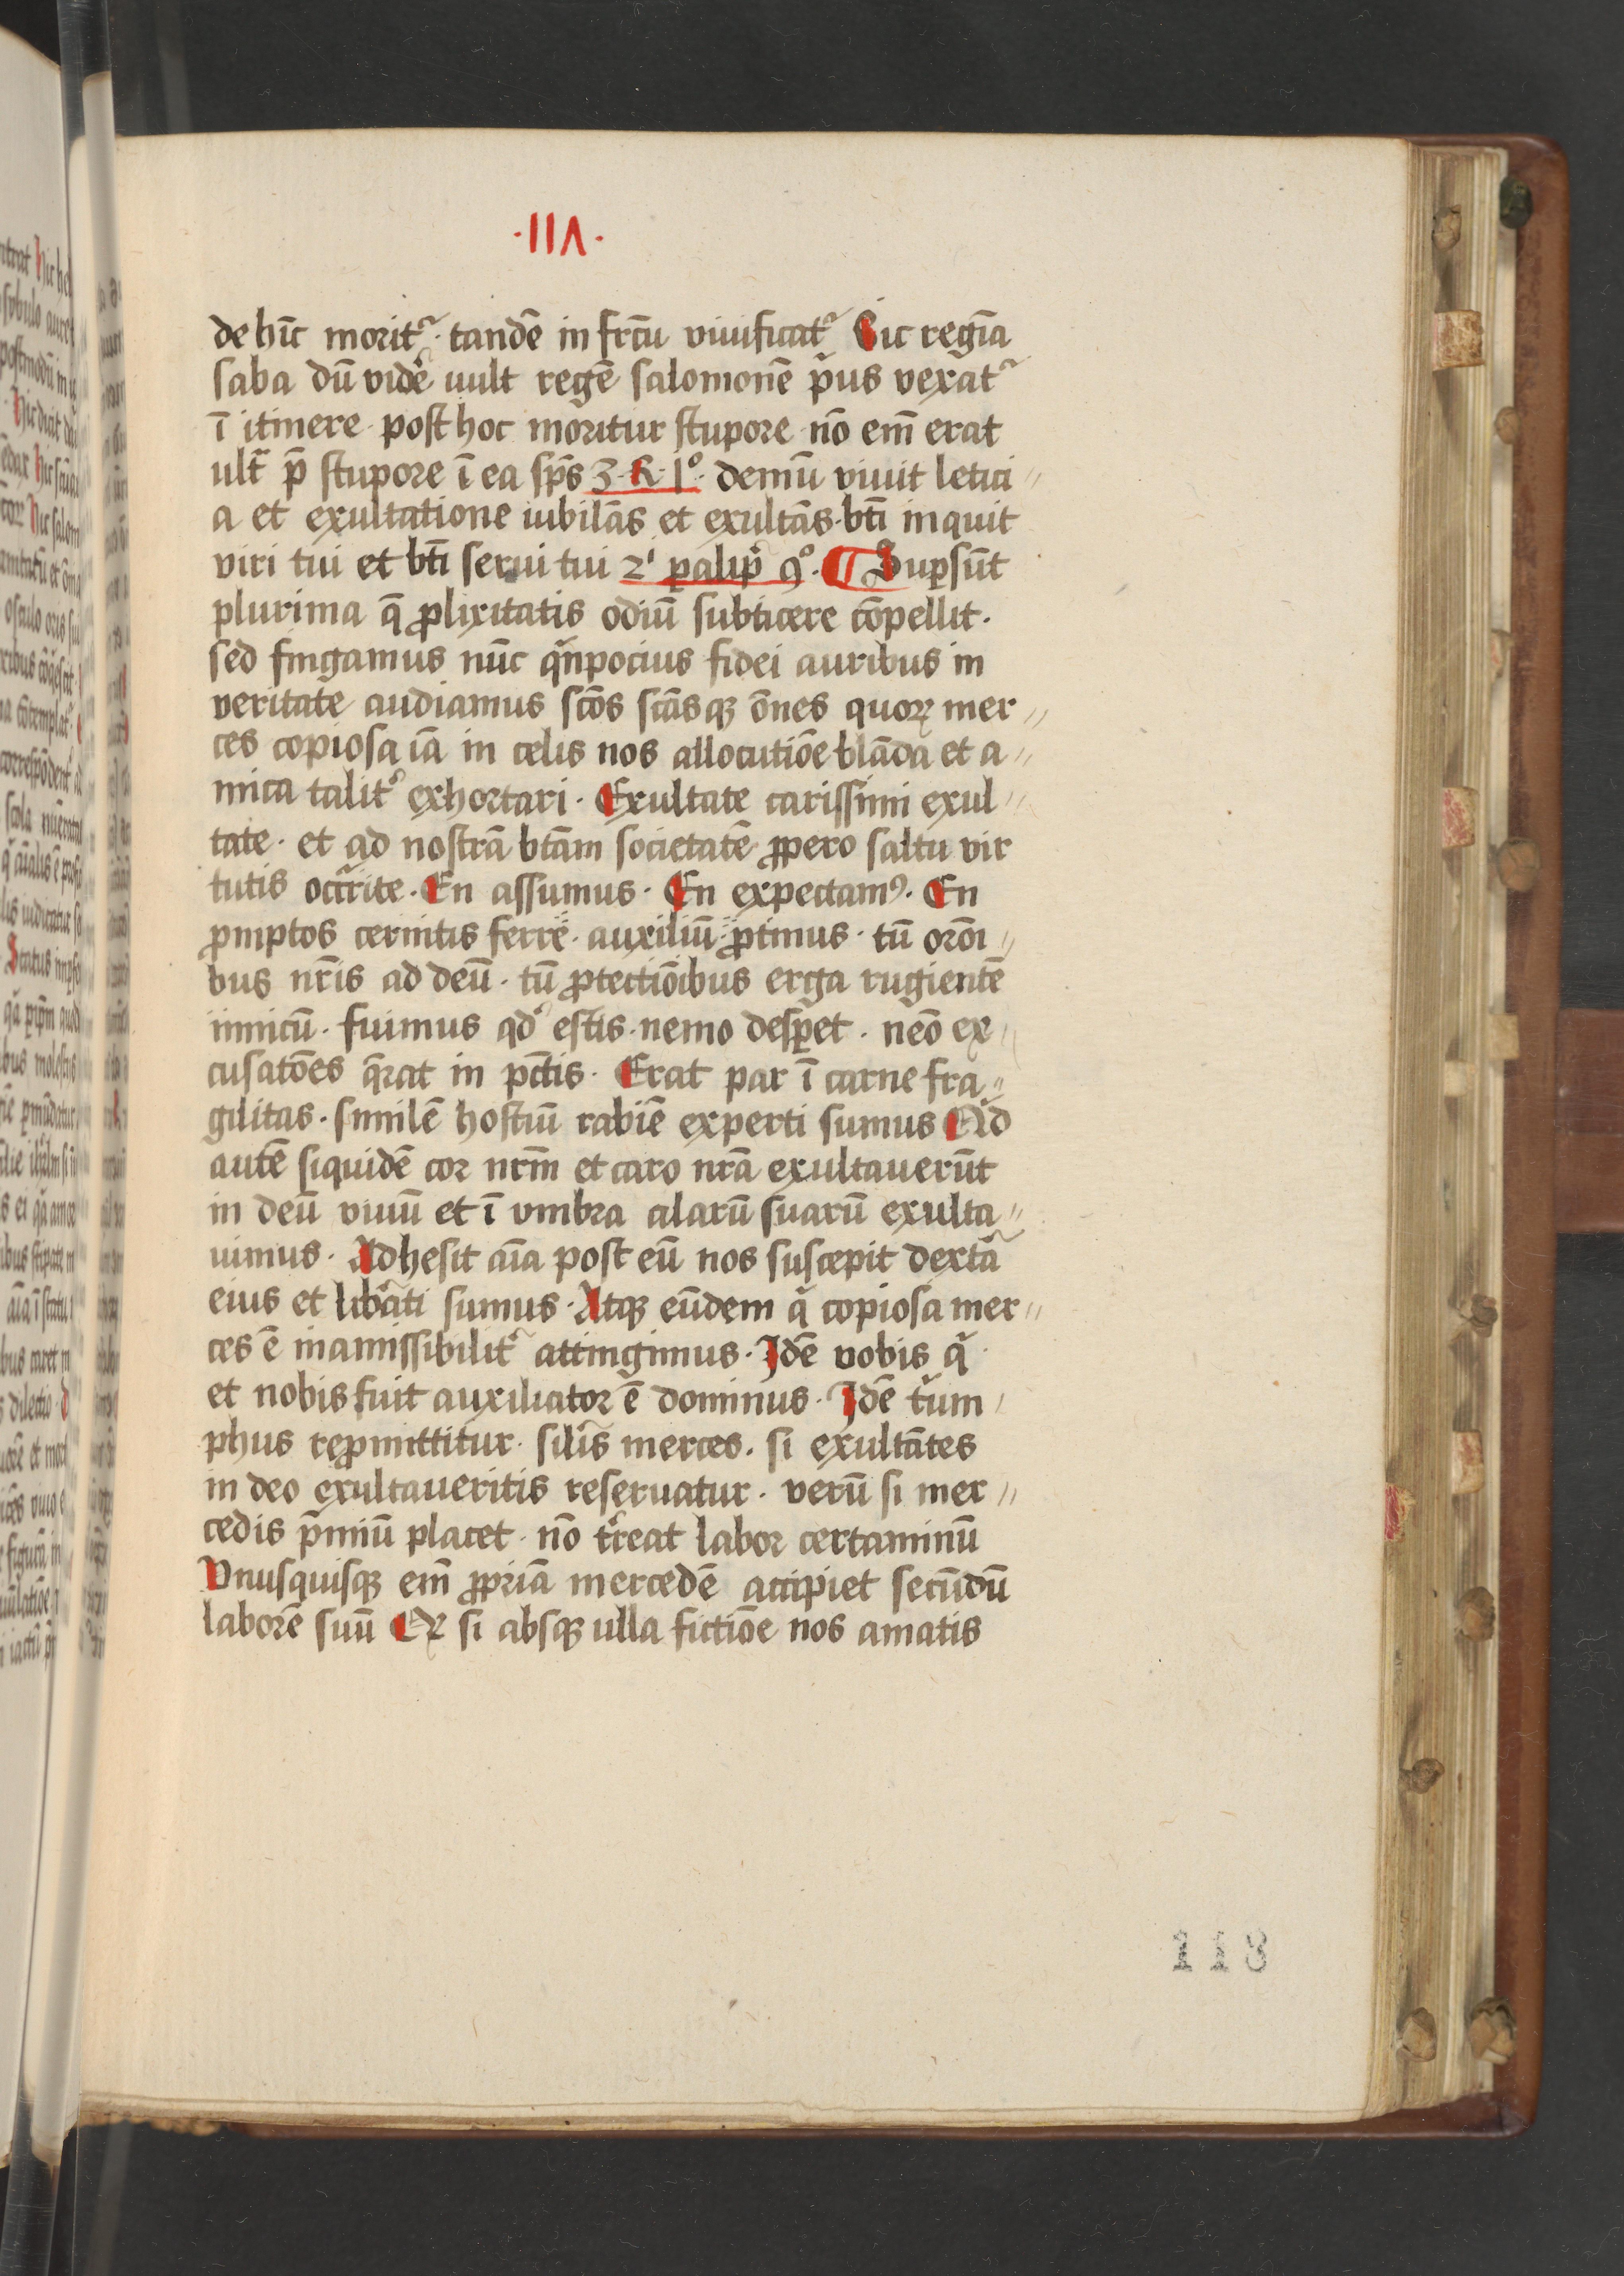 ·IIΛ·
de hīc morit᷑ · tandē in frc̄u viuificat᷑ Sic regīa
saba dū vidē uult regē salomonē p̄us vexat᷑
ī itinere post hoc moritur stupore nō em̄ erat
ult̄ p̄ stupore ī ea sp̄s 3·R·1º· demū viuit letici〃
a et exultatione iubilās et exultās · bt̄i inquit
viri tui et bt̄i serui tui 2ⁱ ꝑalip̄ 9º· ¶ Suꝑsūt
plurima q̄ ꝓlixitatis odiū subticere cōpellit ·
sed fingamus nūc qn̄pocius fidei auribus in
veritate audiamus sc̄os sc̄asqꝫ ōnes quoꝝ mer〃
ces copiosa iā in celis nos allocutiōe blāda et a〃
mica talit᷑ exhortari · Exultate carissimi exul〃
tate · et ad nostrā btām societatē ꝓpero saltu vir
tutis occr̄rite · En assumus · En expectamꝰ · En
ꝓmptos cernitis ferre · auxiliū ꝓtinus · tū orōi〃
bus nr̄is ad deū · tū ꝓtectiōibus erga rugientē
inimicū · fuimus qd̓ estis · nemo desꝑet · neō ex
cusatōes q̄rat in pc̄tis · Erat par ī carne fra〃
gilitas · similē hostiū rabiē experti sumus Ad
autē siquidē cor nrm̄ et caro nrā exultauerūt
in deū viuū et ī vmbra alarū suarū exulta〃
uimus · Adhesit aīa post eū nos suscepit dextā
eius et libāti sumus · Atqꝫ eūdem q̄ copiosa mer〃
ces ē inamissibilit᷑ attingimus · Idē vobis q̄
et nobis fuit auxiliator ē dominus · Idē tͥum
phus reꝓmittitur · silīs merces · si exultātes
in deo exultaueritis reseruatur · verū si mer〃
cedis p̄miū placet · nō t̄reat labor certaminū
Vnusquisqꝫ em̄ ꝓpriā mercedē accipiet secūdū
laborē suū Ex si absqꝫ ulla fictiōe nos amatis
113